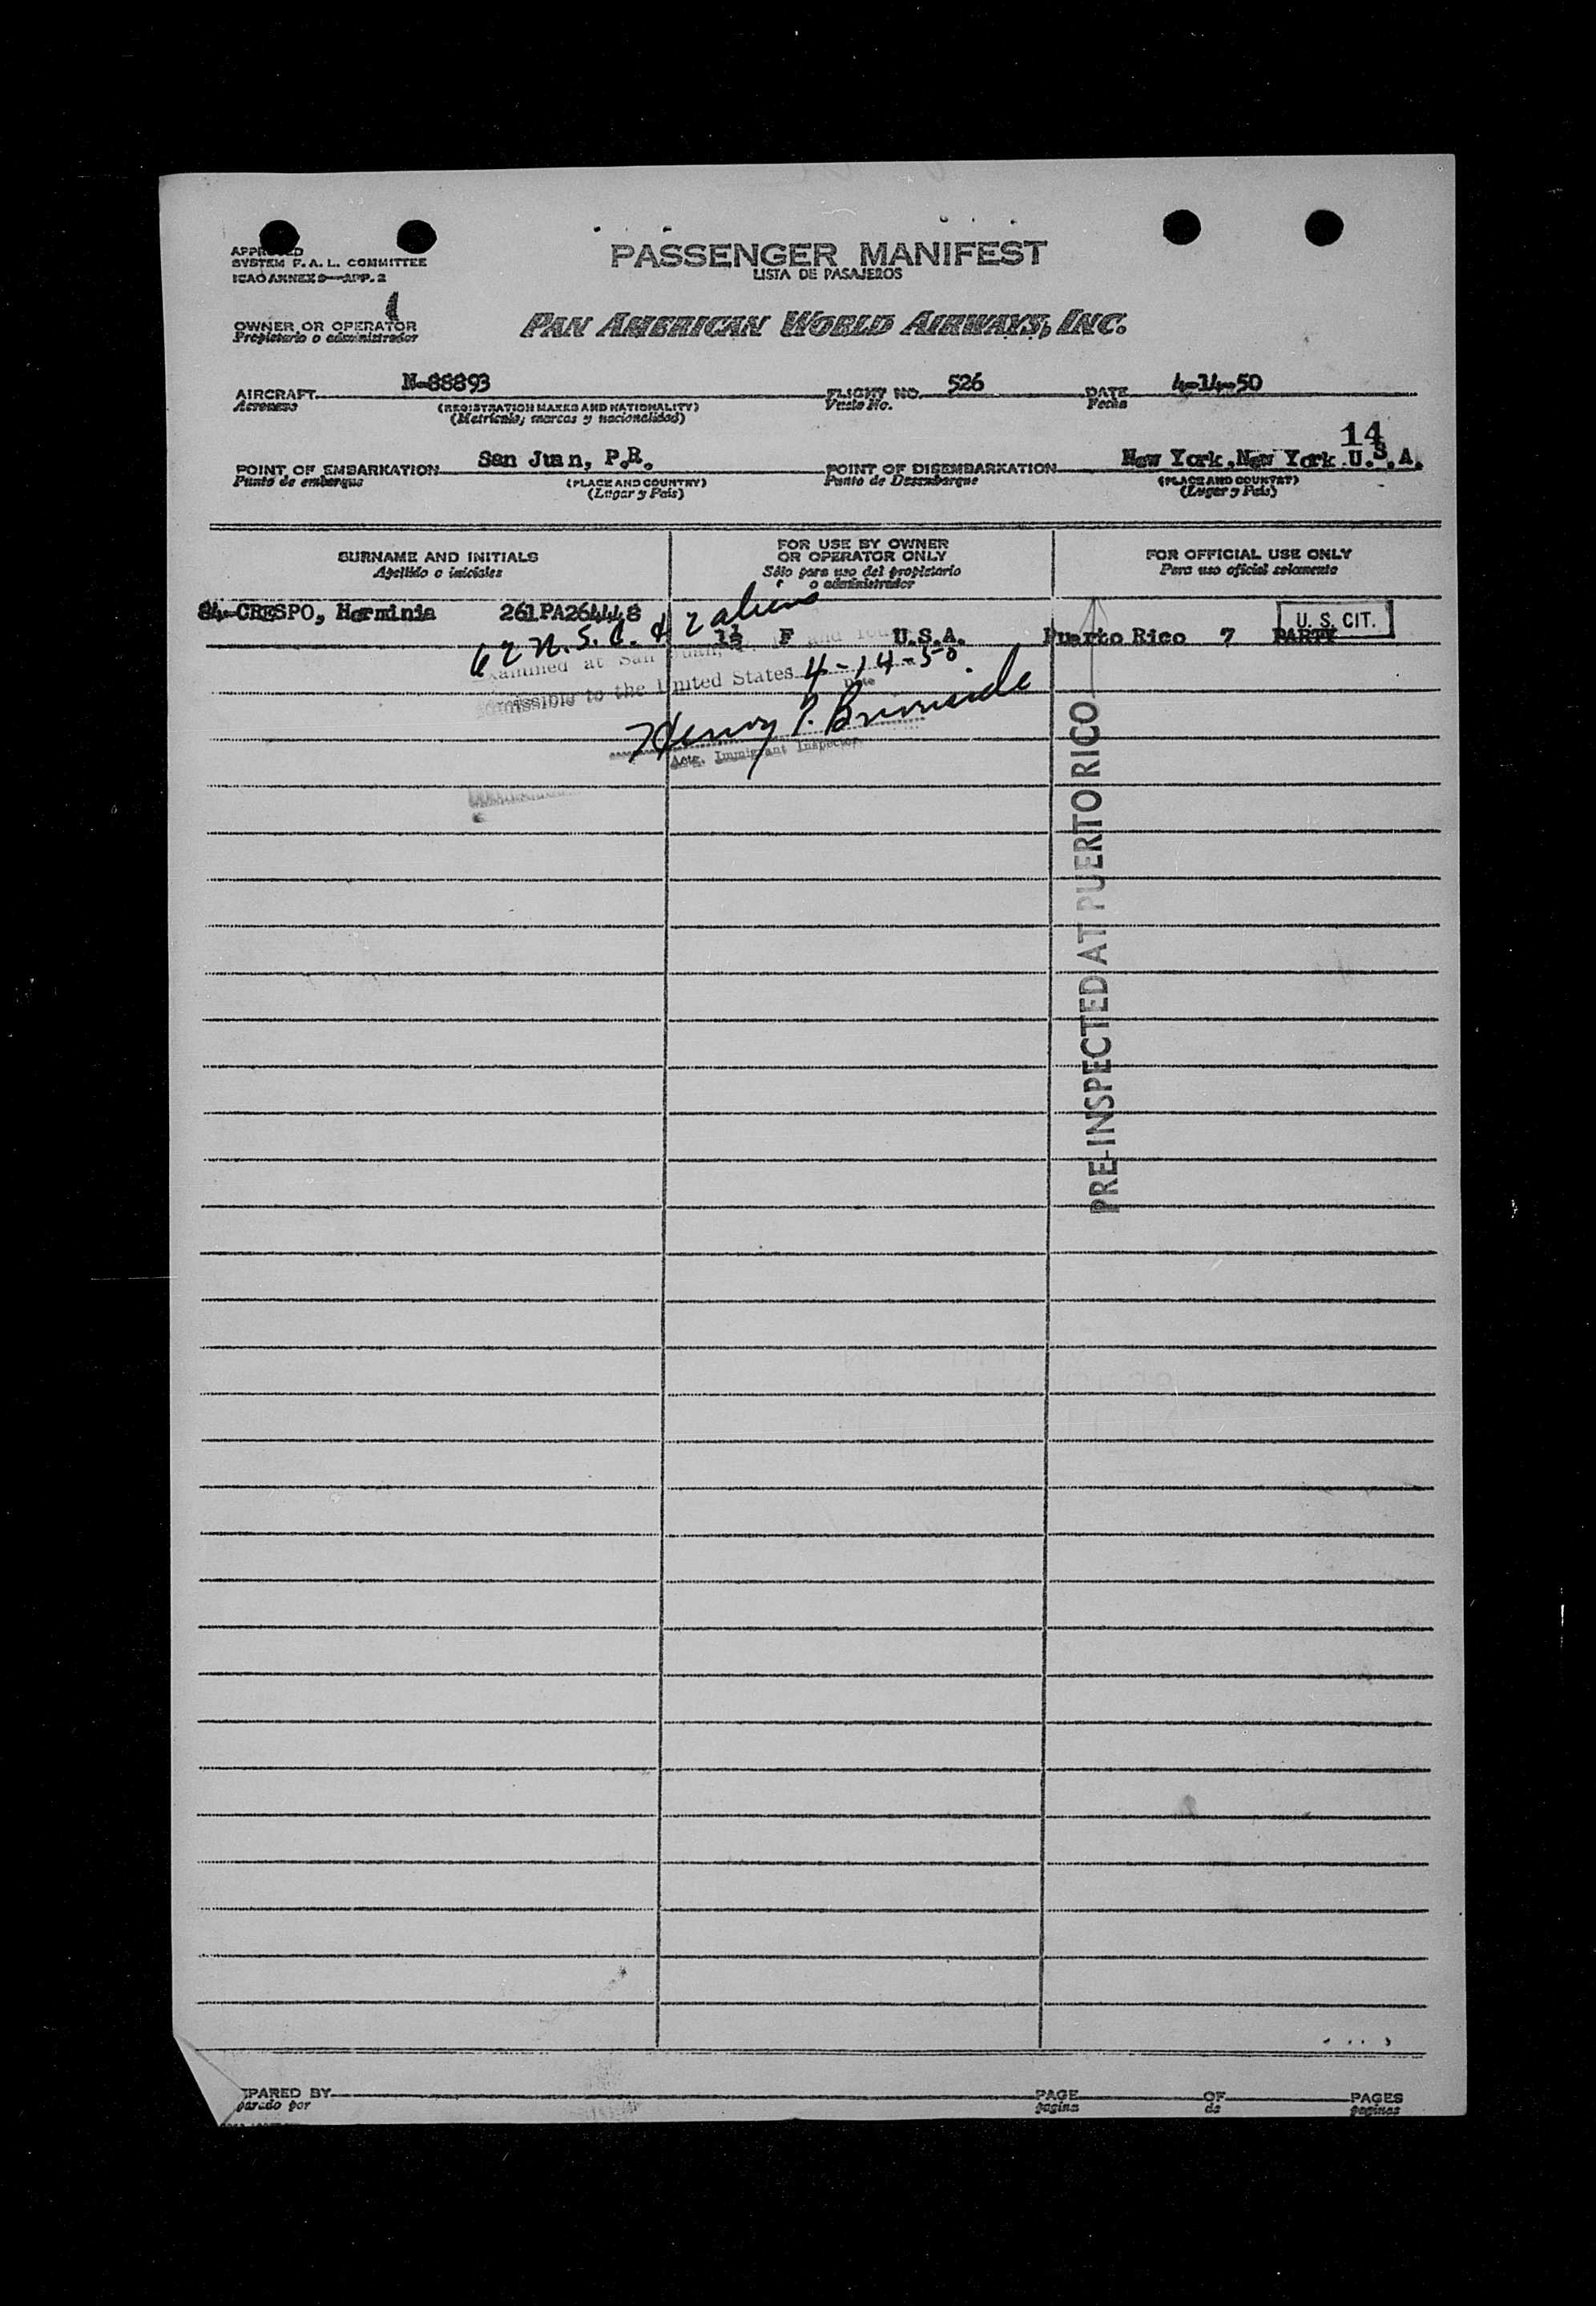 PASSENGER MANIFEST
LISTA DE PASAJEROS
APPROVED
SYSTEM F. A. L. COMMITTEE
ICAO ANNEX 9—APP. 2
OWNER OR OPERATOR
Propietario o administrador
PAN AMERICAN WORLD AIRWAYS, INC.
AIRCRAFT N-88893 FLIGHT NO. 526 DATE 4-14-50
Aeronave (REGISTRATION MARKS AND NATIONALITY) Vuelo No. Fecha
(Matrícula, marcas y nacionalidad)
14
POINT OF EMBARKATION San Juan, P.R. POINT OF DISEMBARKATION New York, New York U.S.A.
Punto de embarque (PLACE AND COUNTRY) Punto de Desembarque (PLACE AND COUNTRY)
(Lugar y País) (Lugar y País)
SURNAME AND INITIALS FOR USE BY OWNER OR OPERATOR ONLY FOR OFFICIAL USE ONLY
Apellido e iniciales Sólo para uso del propietario o administrador Para uso oficial solamente
84-CRESPO, Herminia 261PA264448 U. S. CIT.
F U.S.A. Puerto Rico 7 PARTY
62 U.S.C. & 2 aliens
Examined at San Juan, and found
admissible to the United States 4-14-50
Date
Henry P.
Actg. Immigrant Inspector
PRE-INSPECTED AT PUERTO RICO
PARED BY PAGE OF PAGES
parado por pagina de paginas